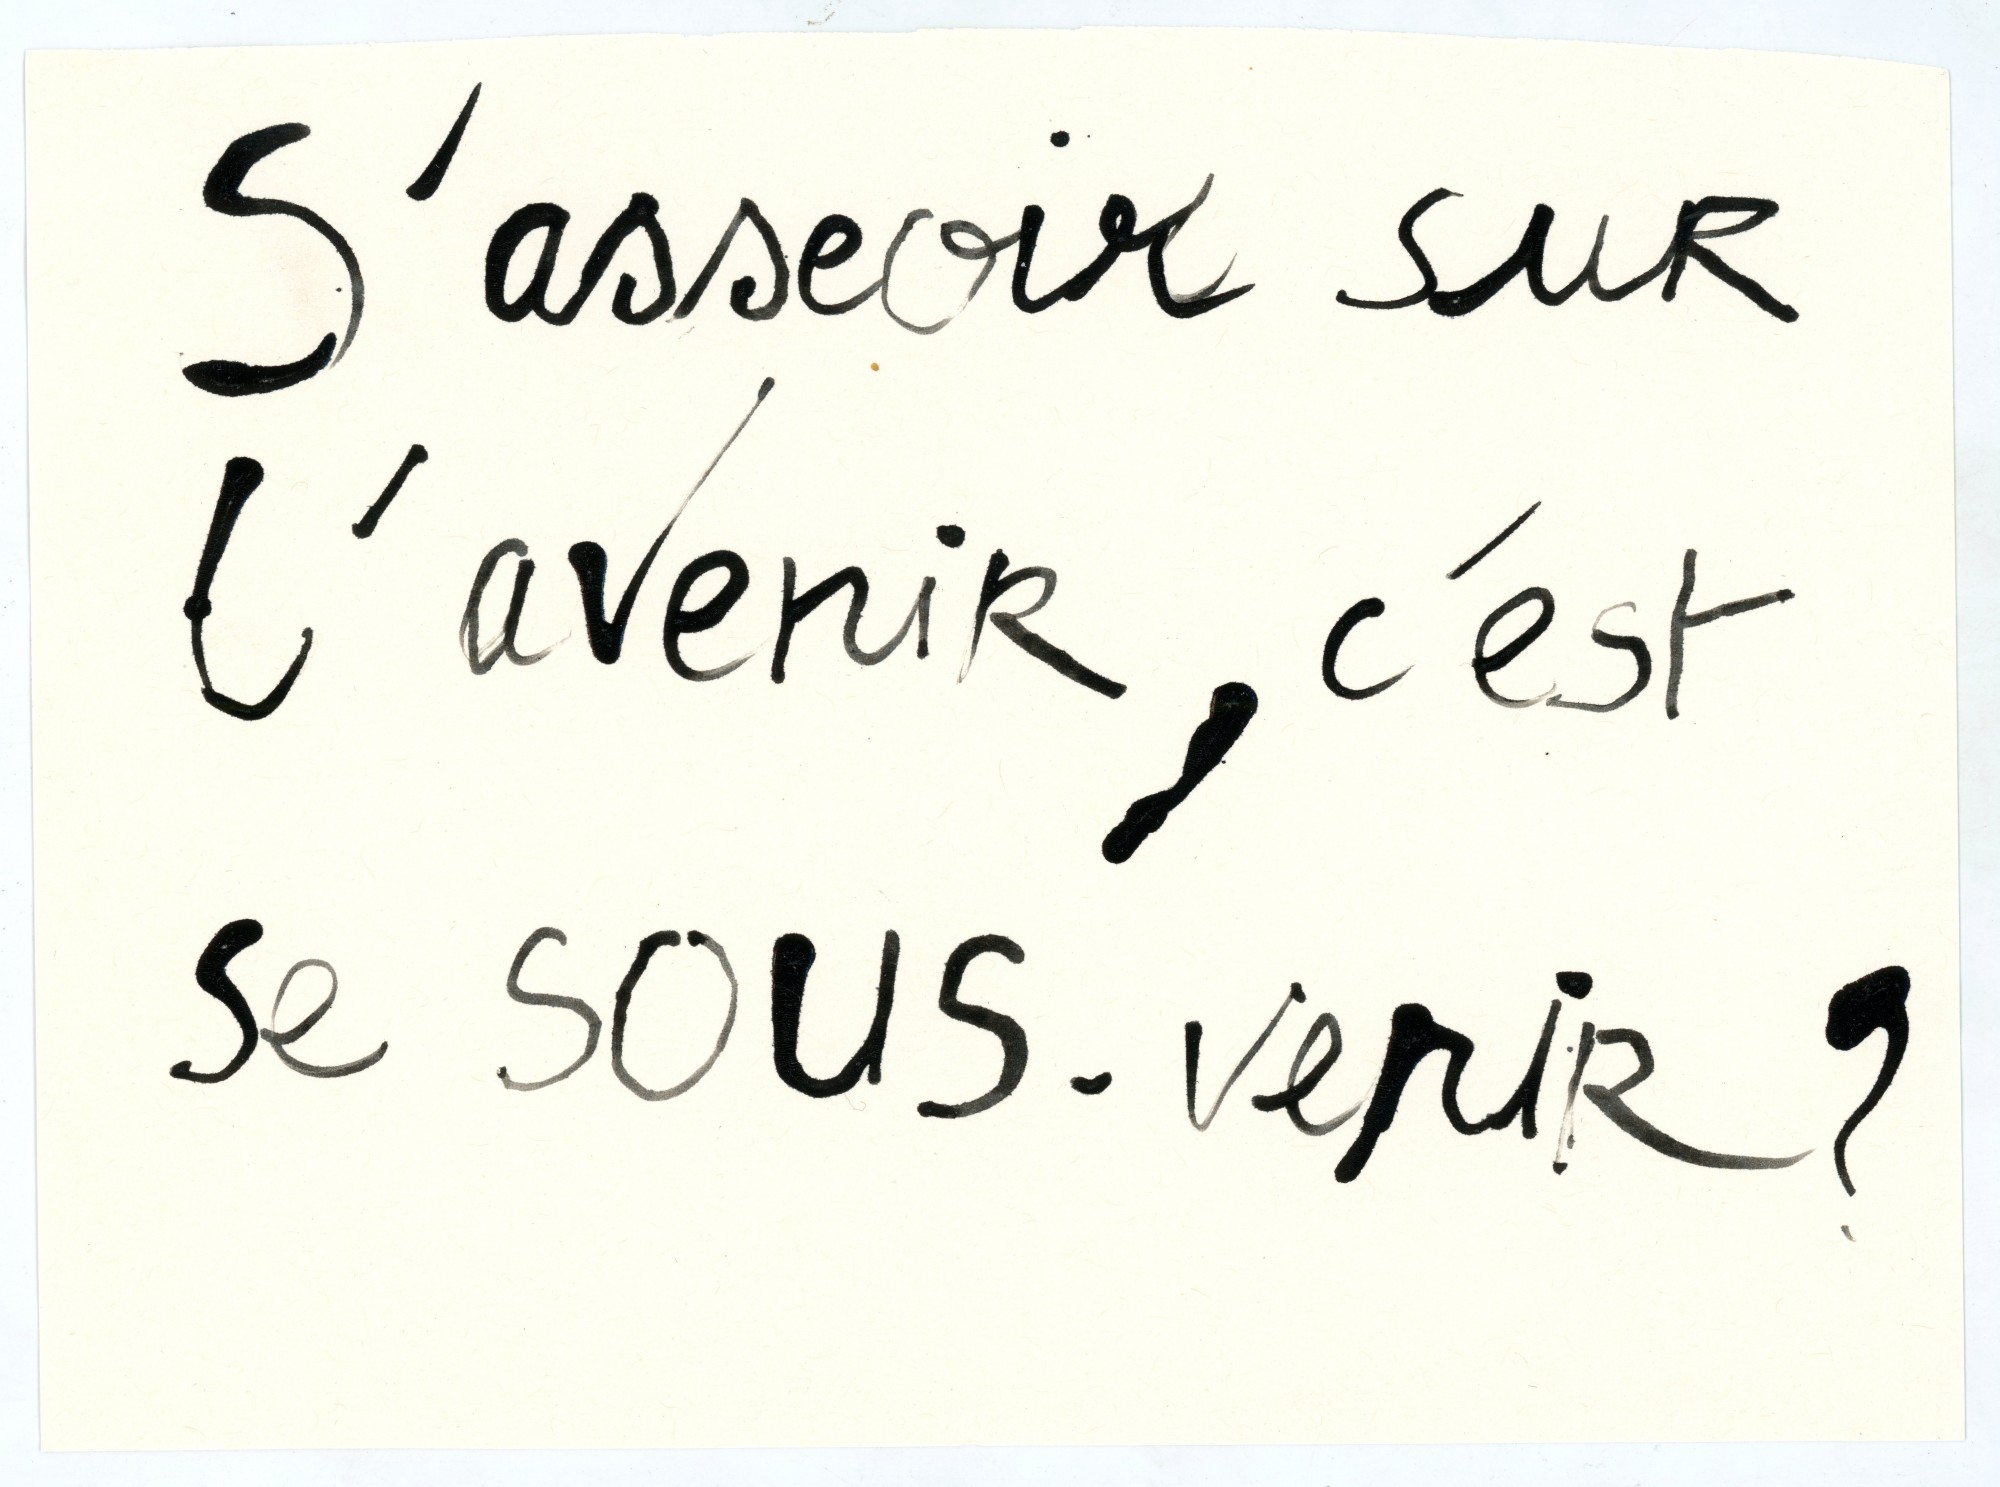 S'asseoir sur
l'avenir, c'est
se SOUS-venir?